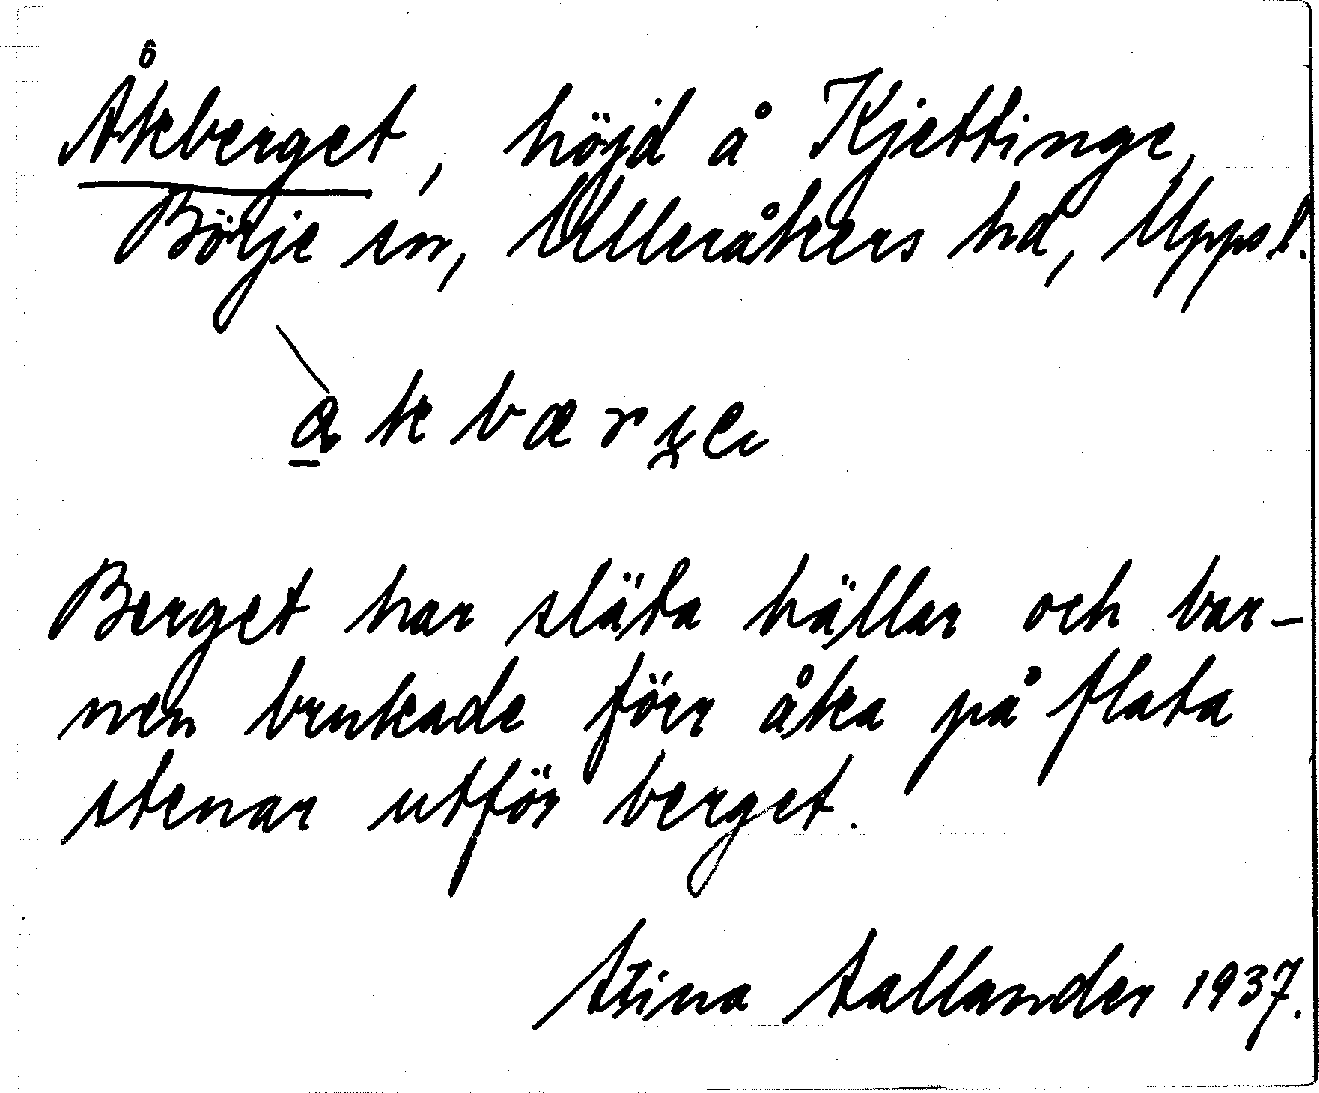 Åkberget, höjd å Kjettinge,
Börje sn, Ulleråkers hd, Uppsl.
Berget har släta hällar och bar-
nen brukade förr åka på flata
stenar utför berget.
Stina Sallander 1937.